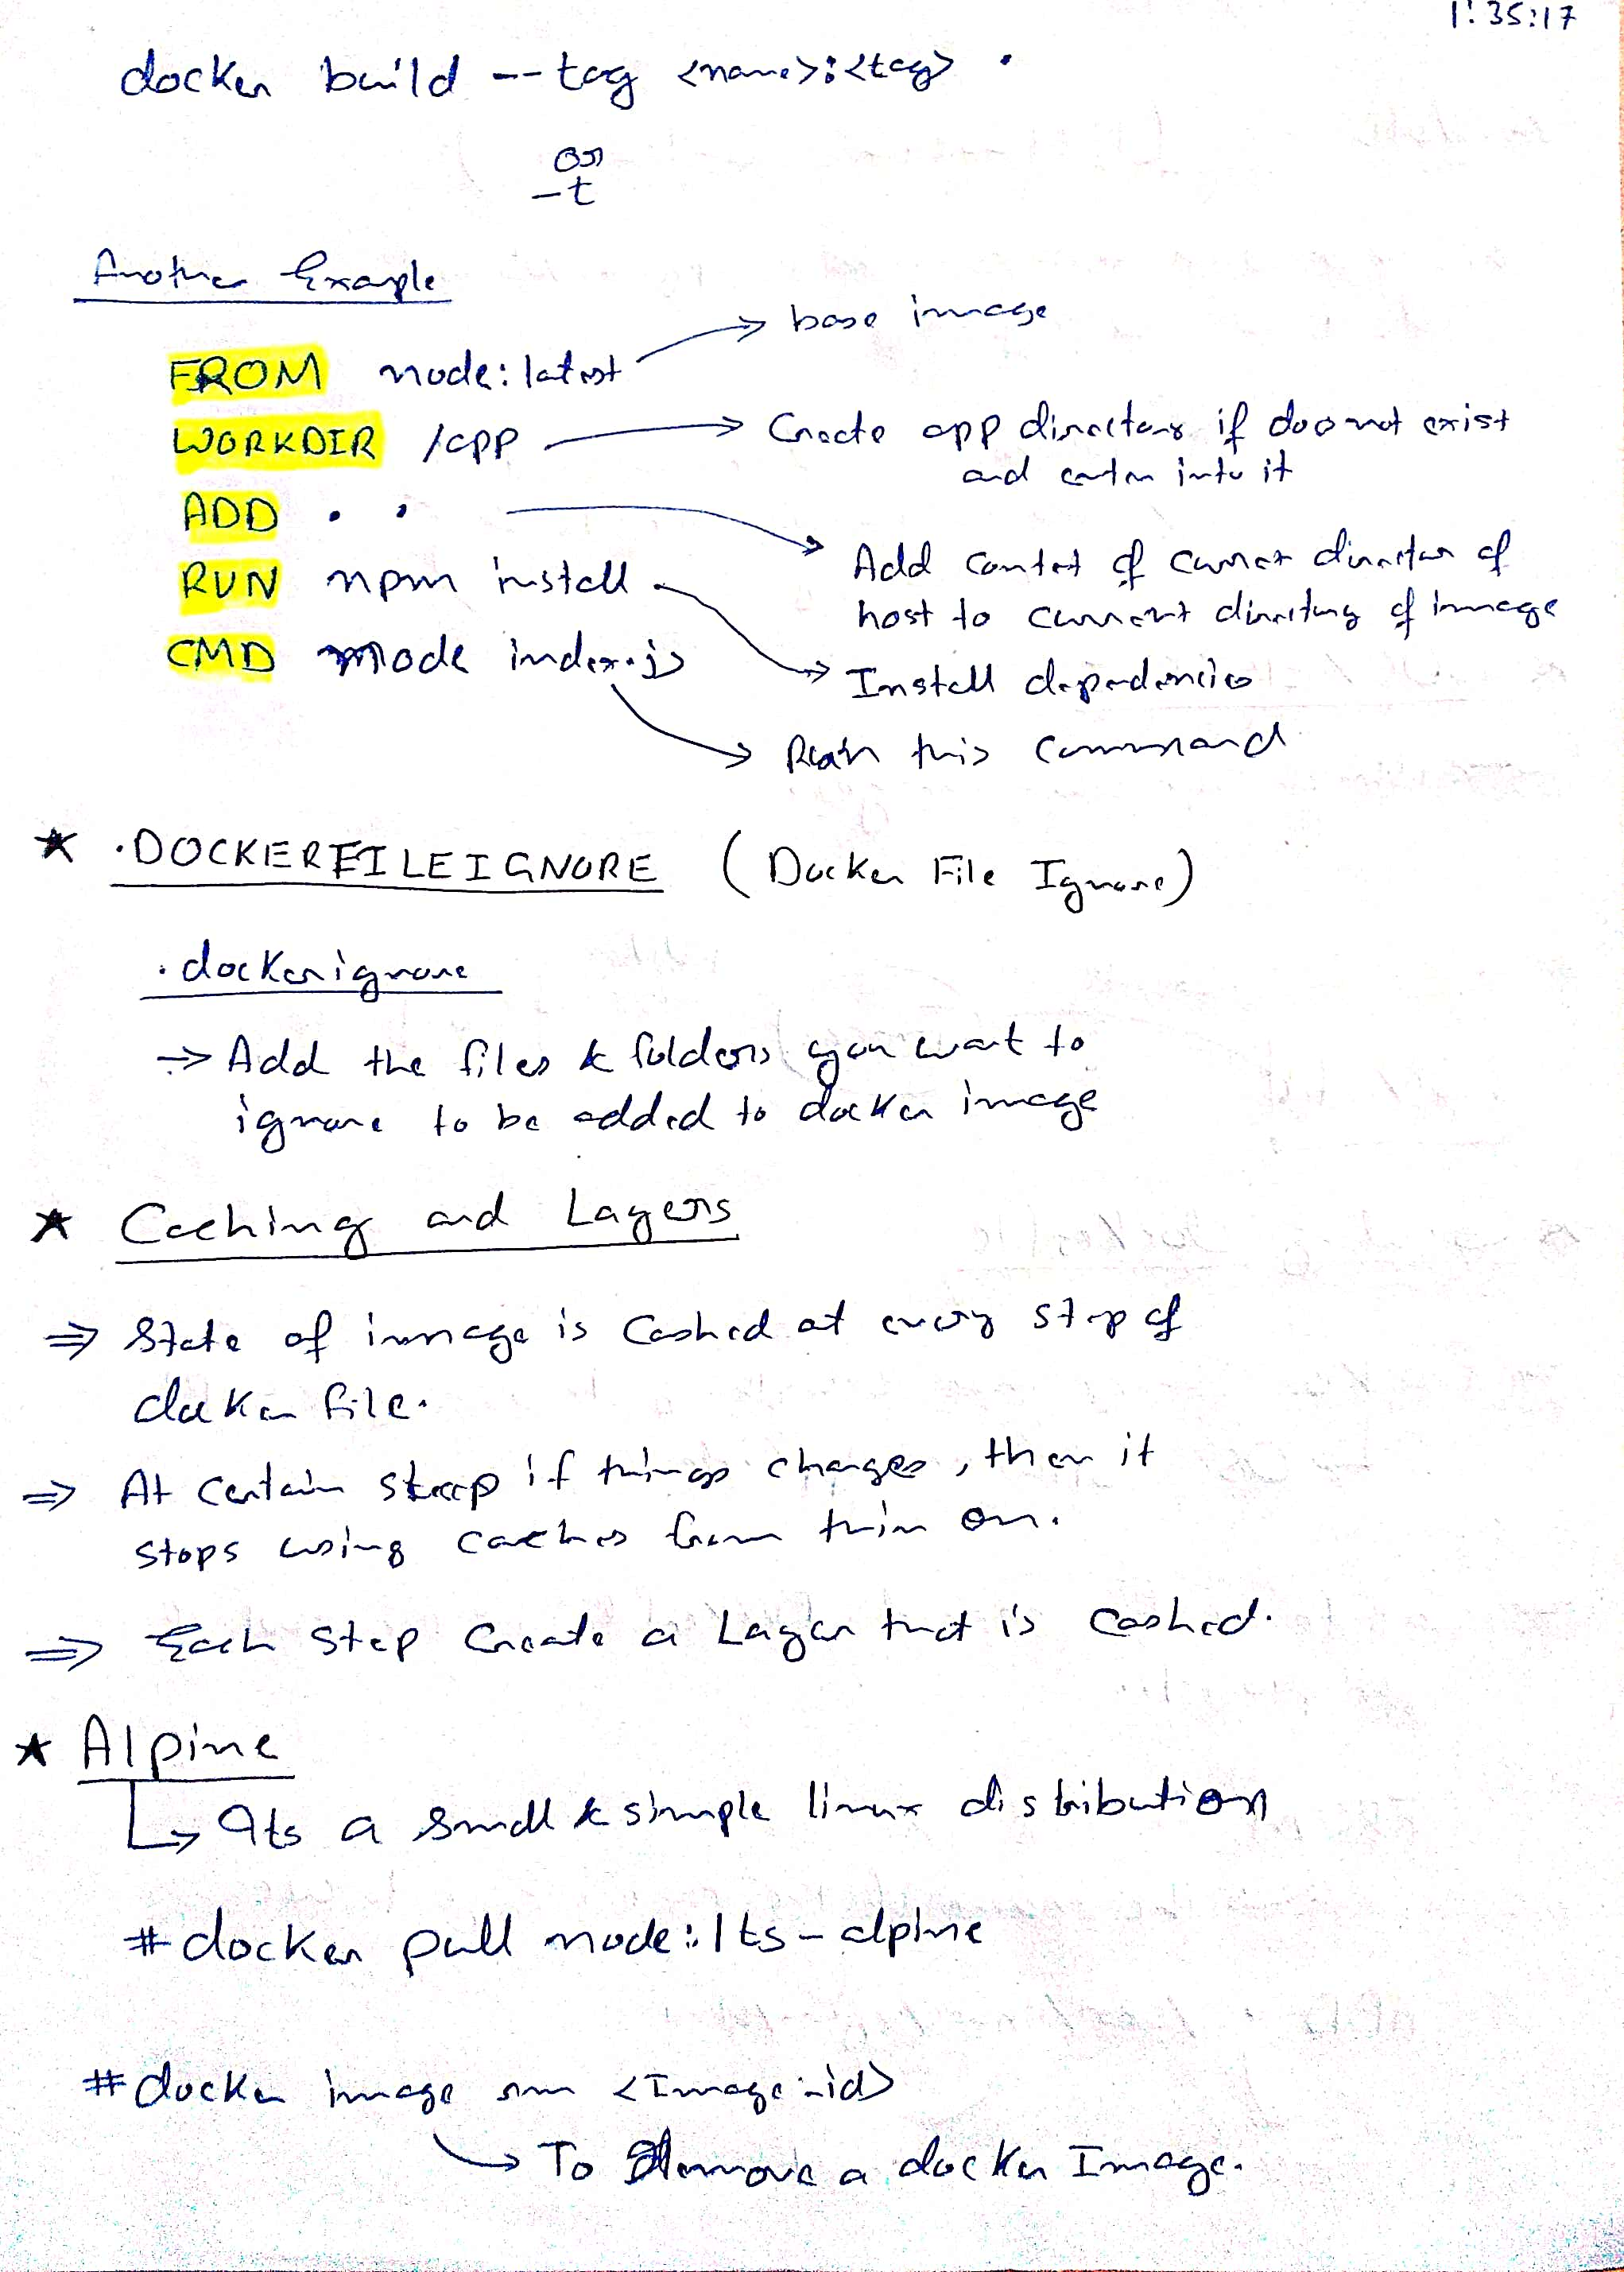 1:35:17
docker build --tag <name>:<tag> .
or
-t
Another Example
FROM node:latest → base image
WORKDIR /app → Create app directory if does not exist
and enter into it
ADD . . → Add content of current directory of
host to current directory of image
RUN npm install → Install dependencies
CMD node index.js → Run this command
★ .DOCKERFILEIGNORE (Docker File Ignore)
.dockerignore
⇒ Add the files & folders you want to
ignore to be added to docker image
★ Caching and Layers
⇒ State of image is Cashed at every step of
docker file.
⇒ At certain step if things changes, then it
stops using caches from then on.
⇒ Each step Create a Layer that is Cashed.
★ Alpine
↳ Its a small & simple linux distribution
# docker pull node:lts-alpine
# docker image rm <Image-id>
→ To Remove a docker Image.